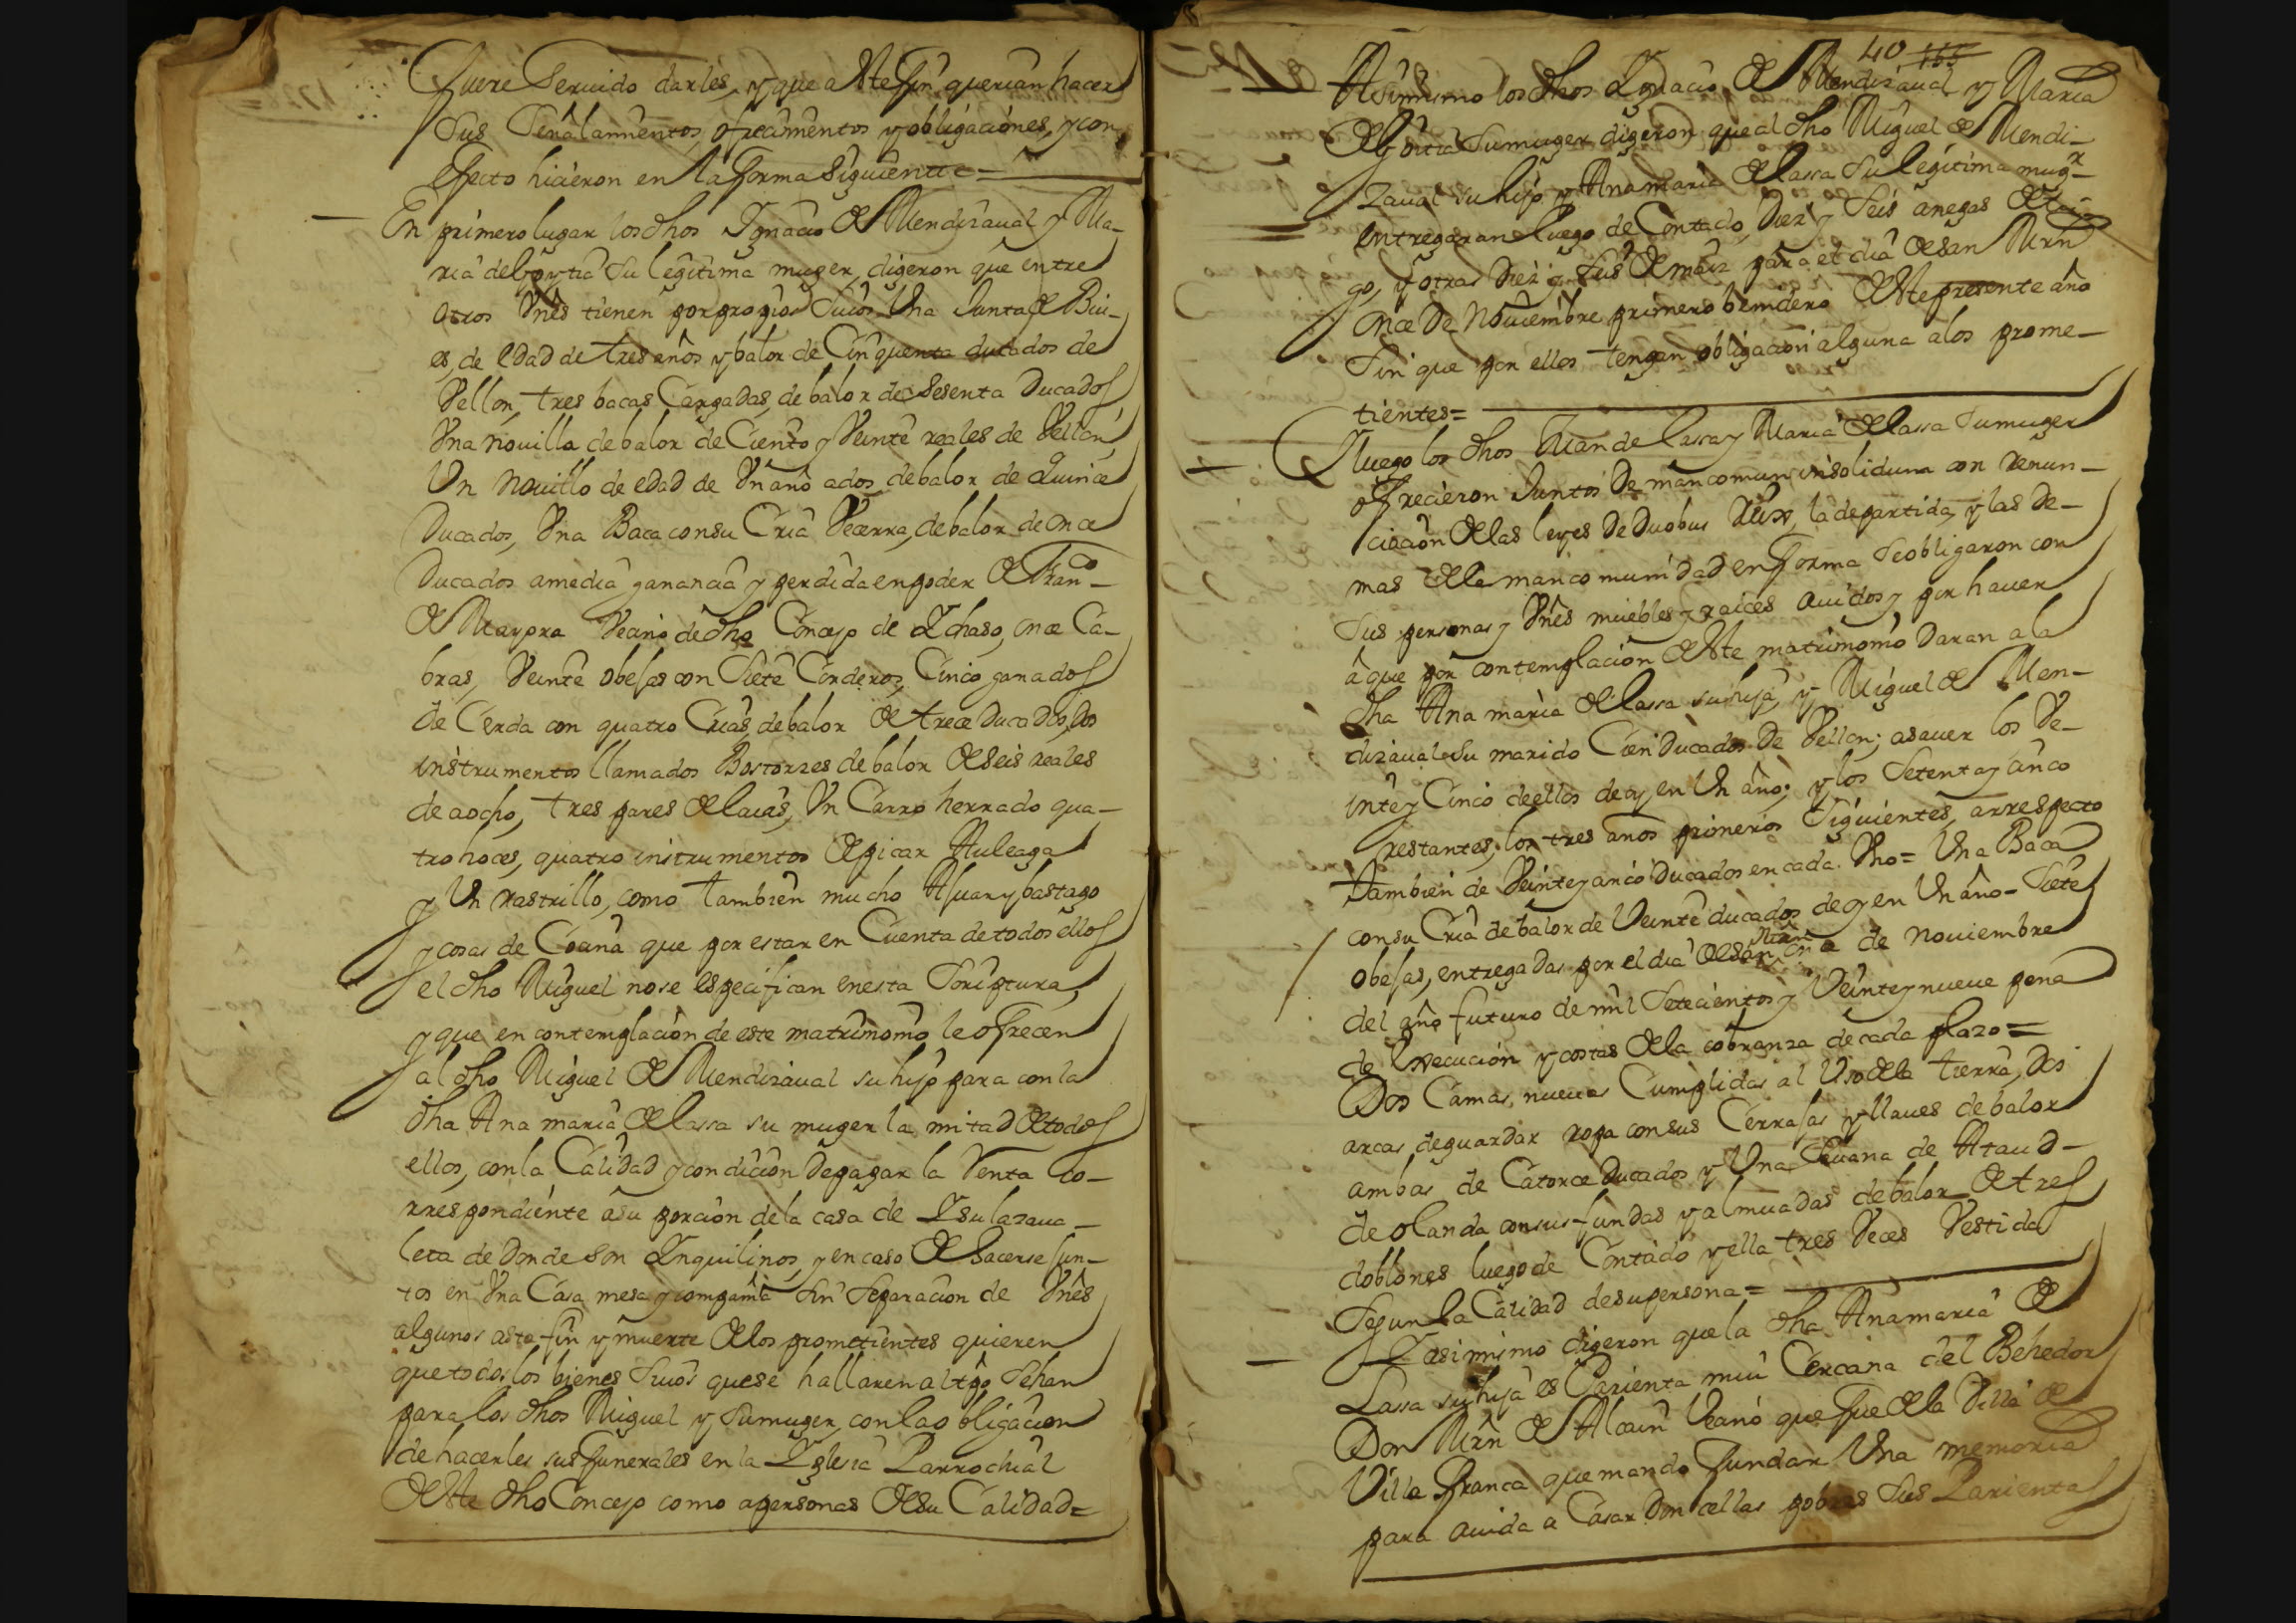 fuere Seruido darles, y que a este fin querian hacer
sus Señalamientos, ofrecimientos y obligaciones, y con
efecto hicieron en la forma siguiente =
En primero lugar los dhos Ygnacio de Mendizaual y Ma-
ria de su legitima muger, digeron que entre
otros Vnes tienen por propios Suios Una Junta de Bui-
es, de edad de tres años y balor de Cinquenta ducados de
Vellon, tres bacas Cargadas, de balor de Sesenta Ducados
Vna nouilla de balor de Ciento y Veinte reales de Vellon,
Un Nouillo de edad de Vn año a dos, de balor de Quince
Ducados, Vna Baca con su Cria Vecerra, de balor de once
Ducados a media ganancia y perdida en poder de Franco
de Mayora Vecino de dho Concejo de Ychaso, once Ca-
bras, Veinte obejas con Siete Corderos, Cinco ganados
de Cerda con quatro Crias, de balor de trece Ducados, dos
instrumentos llamados Bostorzes de balor de seis reales
de a ocho, tres pares de laias, Vn Carro herrado qua-
tro hoces, quatro instrumentos de picar Auleaga
y Un rastrillo, como tambien mucho Ajuar y bastago
y cosas de Cocina que por estar en Cuenta de todos ellos
el dho Miguel no se espeçifican en esta Scriptura,
y que en contemplacion de este matrimonio le ofrecen
al dho Miguel de Mendizaual su hijo para con la
dha Ana maria de lassa su muger la mitad de todos
ellos, con la Calidad y condicion de pagar la Renta Co-
rrespondiente a su porcion de la casa de Ysulazaua-
leta de donde son Ynquilinos, y en caso de hacerse Jun-
tos en Vna Casa mesa y compañia Sin Separacion de Vnes
algunos asta fin y muerte de los prometientes quieren
que todos los bienes Suios que se hallaren al tpo Sehan
para los dhos Miguel y Su muger, con la obligacion
de hacerles sus funerales en la Yglesia Parrochial
de este dho Concejo como a personas de su Calidad =
40 165
Asimismo los dhos Ygnacio de Mendizaual y Maria
de su muger digeron que al dho Miguel de Mendi-
zaual su hijo y Ana maria de lassa Su legitima mugr
entregaran luego de Contado, Diez y Seis anegas de tri-
go, y otras Diez y Seis de maiz para el dia de San Mrn
once de Nouiembre primero benidero de este presente año
Sin que por ellos tengan obligacion alguna a los prome-
tientes =
Y luego los dhos Juan de lassa y Maria de lassa Su muger
ofrecieron Juntos de mancomun insolidum con renun-
ciacion de las leyes de Duobus Reix, la de partida y las de-
mas de la mancomunidad en forma Se obligaron con
Sus personas y Vnes muebles y raices auidos y por hauer
a que por contemplacion de este matrimonio Daran a la
dha Ana maria de lassa su hija y Miguel de Men-
dizaual Su marido Cien Ducados de Vellon; a sauer los Ve-
inte y Cinco de ellos de oy en Un año; y los Setenta y cinco
restantes, los tres años primeros Siguientes, a rrespecto
tambien de Veinte y cinco Ducados en cada Vno = Una Baca
con su Cria de balor de Veinte ducados de oy en Un año - Siete
obejas, entregadas por el dia de San Martin once de nouiembre
del año futuro de mil Setecientos y Veinte y nueue pena
de execucion y costas de la cobranza de cada plazo =
Dos Camas nueuas Cumplidas al Uso de la tierra, dos
arcas de guardar ropa con sus Cerrajas y llaues de balor
ambas de Catorce Ducados y Una Sauana de Ataud-
de olanda con sus fundas y almuadas de balor de tres
doblones luego de Contado y ella tres Veces Vestida
Segun la Calidad de su persona =
Y asimismo digeron que la dha Ana maria de
Lassa su hija es Parienta mui Cercana del Behedor
Don Mrn de Alcain Vecino que fue de la Villa de
Villafranca que mando fundar Una memoria
para auida a Casar Doncellas pobres Sus Parientas